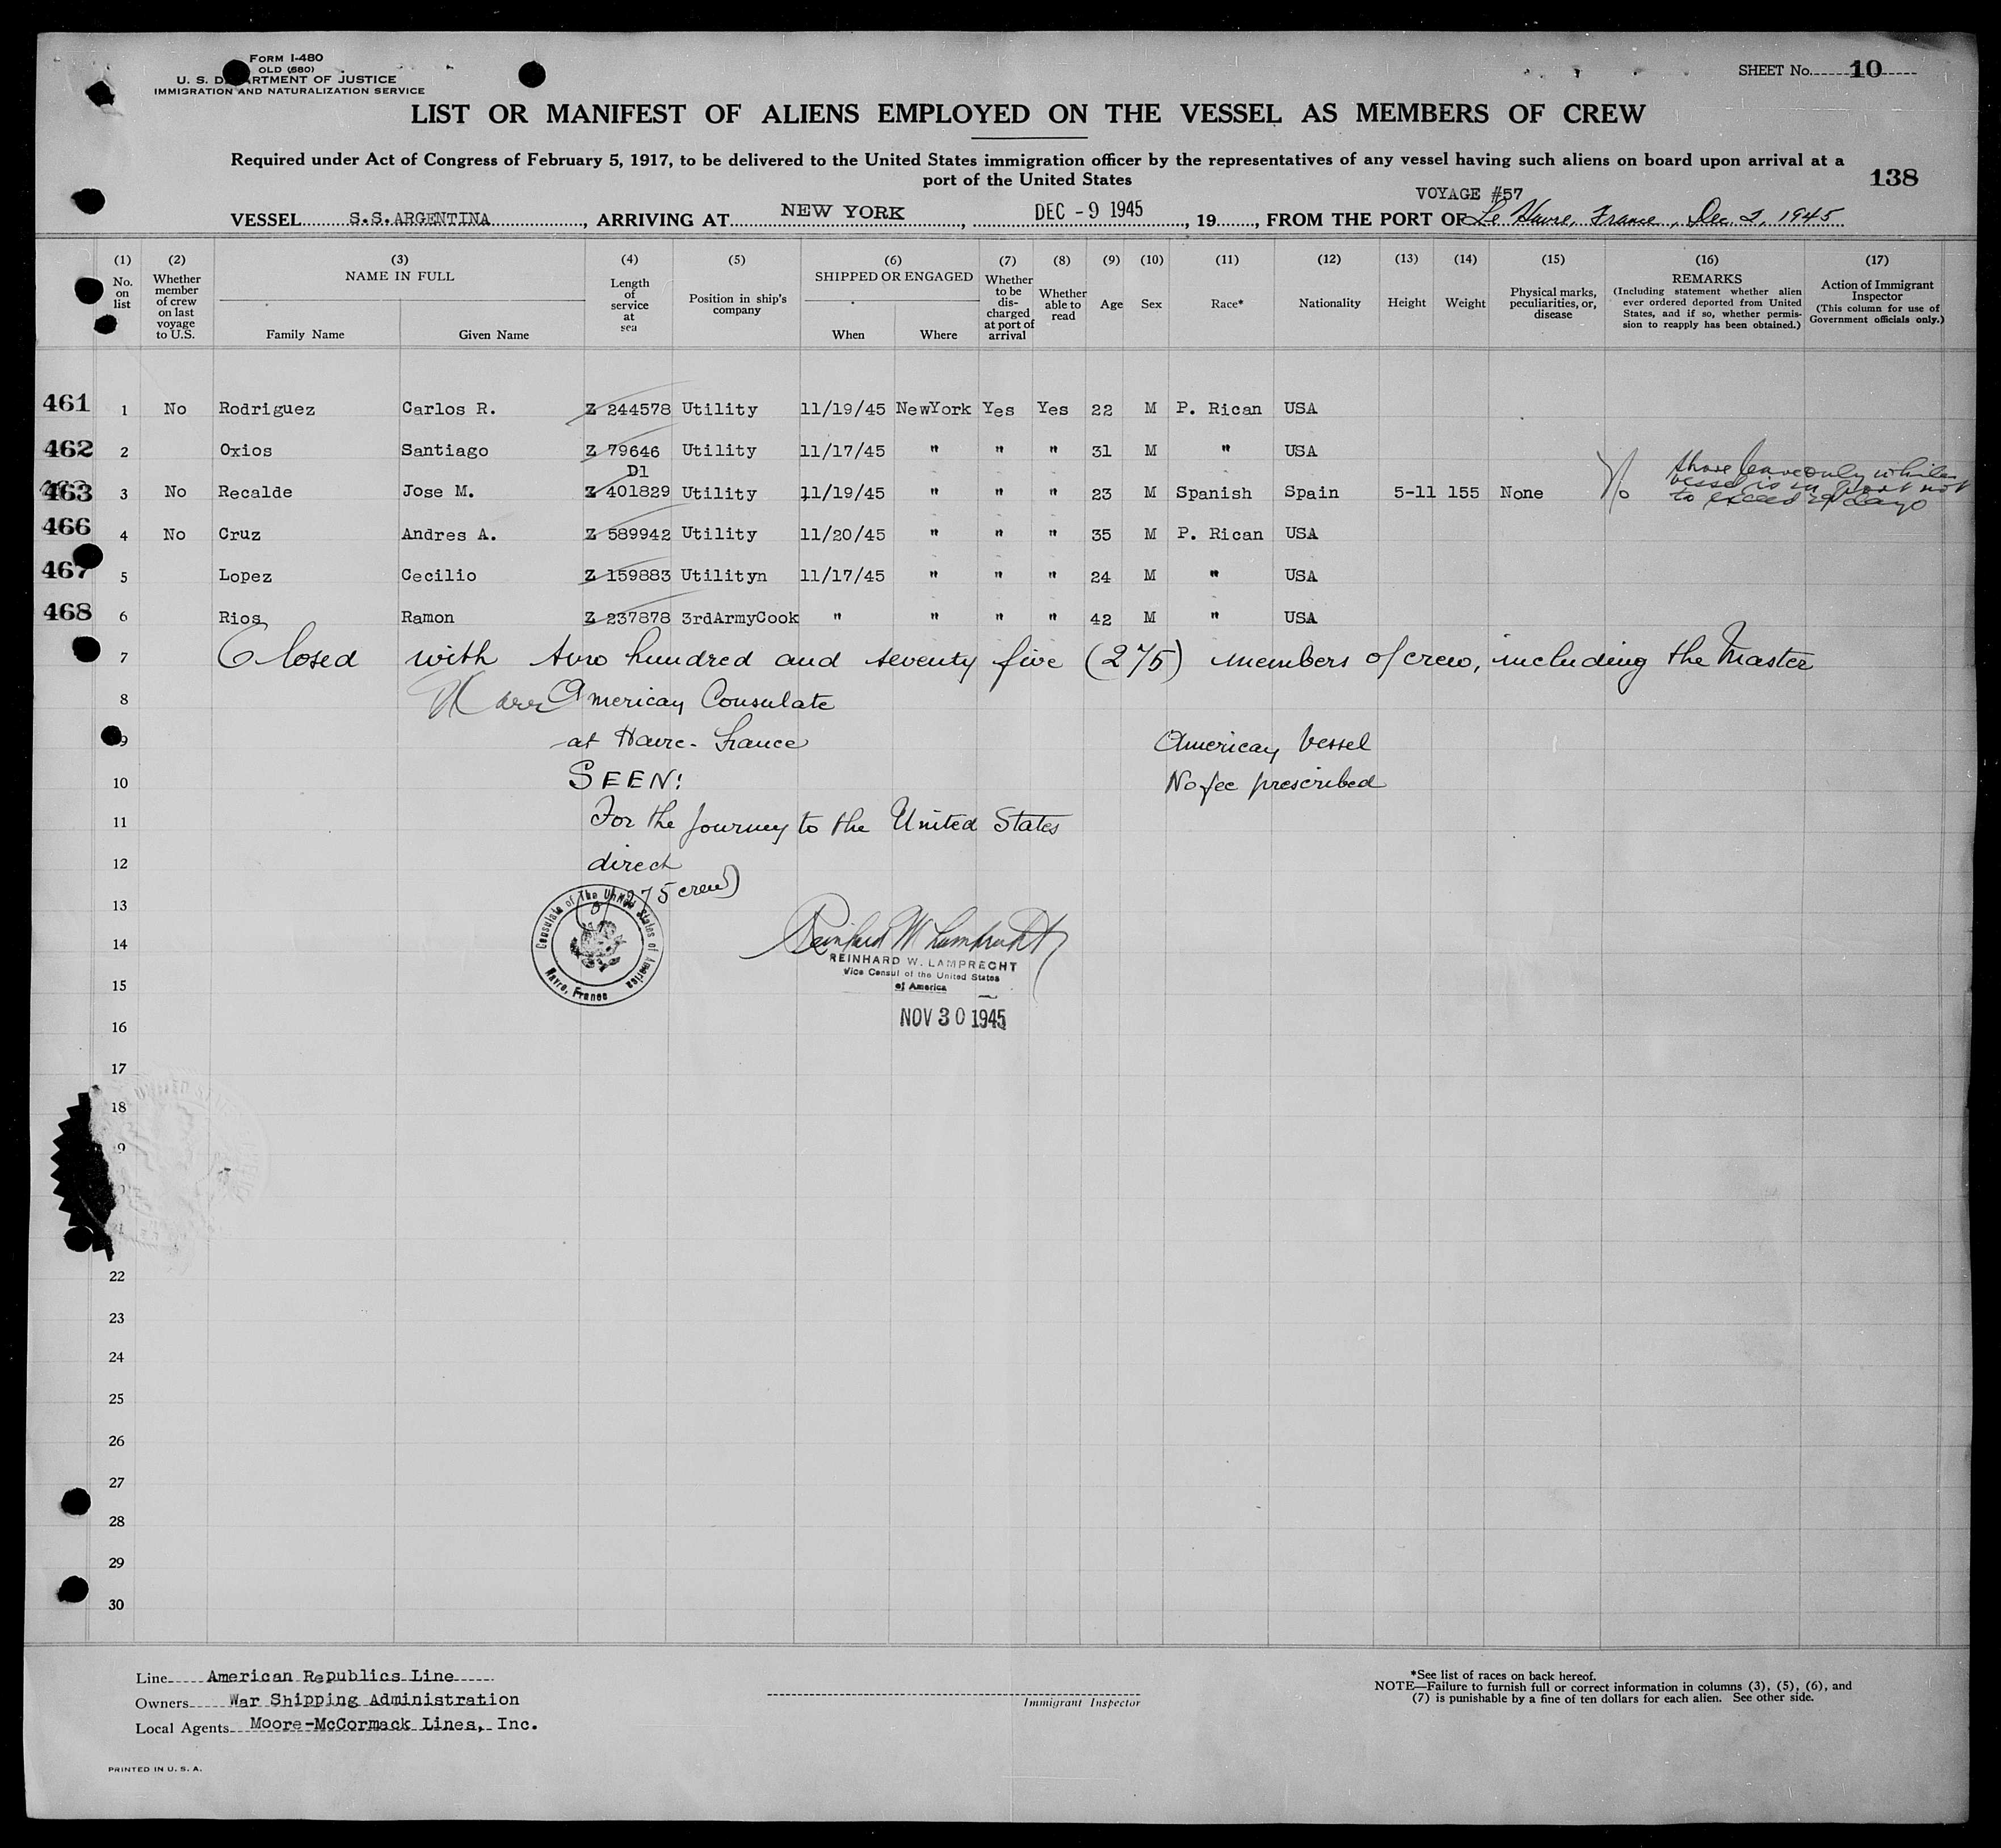 FORM I-480
OLD (680)
U. S. DEPARTMENT OF JUSTICE
IMMIGRATION AND NATURALIZATION SERVICE
SHEET No. 10
LIST OR MANIFEST OF ALIENS EMPLOYED ON THE VESSEL AS MEMBERS OF CREW
Required under Act of Congress of February 5, 1917, to be delivered to the United States immigration officer by the representatives of any vessel having such aliens on board upon arrival at a
port of the United States
138
VOYAGE #57
VESSEL S.S. ARGENTINA, ARRIVING AT NEW YORK, DEC -9 1945, 19, FROM THE PORT OF Le Havre, France, Dec. 2, 1945
(1) No. on list
(2) Whether member of crew on last voyage to U.S.
(3) NAME IN FULL Family Name Given Name
(4) Length of service at sea
(5) Position in ship's company
(6) SHIPPED OR ENGAGED When Where
(7) Whether to be discharged at port of arrival
(8) Whether able to read
(9) Age
(10) Sex
(11) Race*
(12) Nationality
(13) Height
(14) Weight
(15) Physical marks, peculiarities, or, disease
(16) REMARKS (Including statement whether alien ever ordered deported from United States, and if so, whether permission to reapply has been obtained.)
(17) Action of Immigrant Inspector (This column for use of Government officials only.)
461 1 No Rodriguez Carlos R. Z 244578 Utility 11/19/45 NewYork Yes Yes 22 M P. Rican USA
462 2 Oxios Santiago Z 79646 Utility 11/17/45 " " " 31 M " USA
D1
463 3 No Recalde Jose M. Z 401829 Utility 11/19/45 " " " 23 M Spanish Spain 5-11 155 None
shore leave only while
vessel is in port not
to exceed 29 days
466 4 No Cruz Andres A. Z 589942 Utility 11/20/45 " " " 35 M P. Rican USA
467 5 Lopez Cecilio Z 159883 Utilityn 11/17/45 " " " 24 M " USA
468 6 Rios Ramon Z 237878 3rdArmyCook " " " " 42 M " USA
7 Closed with two hundred and seventy five (275) members of crew, including the Master
8 American Consulate
9 at Havre - France American Vessel
10 SEEN: No fee prescribed
11 For the journey to the United States
12 direct
13 (275 crew)
14
Consulate of The United States of America
Havre, France
Reinhard W. Lamprecht
REINHARD W. LAMPRECHT
Vice Consul of the United States
of America
15
NOV 30 1945
16
17
18
22
23
24
25
26
27
28
29
30
Line American Republics Line
Owners War Shipping Administration
Local Agents Moore-McCormack Lines, Inc.
Immigrant Inspector
*See list of races on back hereof.
NOTE—Failure to furnish full or correct information in columns (3), (5), (6), and
(7) is punishable by a fine of ten dollars for each alien. See other side.
PRINTED IN U. S. A.